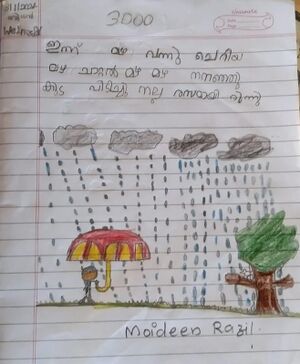 classmate
Date
Page
3000
ഇന്ന് മഴ വന്നു ചെറിയ
മഴ ചാറ്റൽ മഴ മഴ നനഞ്ഞു
കുട പിടിച്ചു നല്ല രസമായി രുന്നു
Moideen Razil.